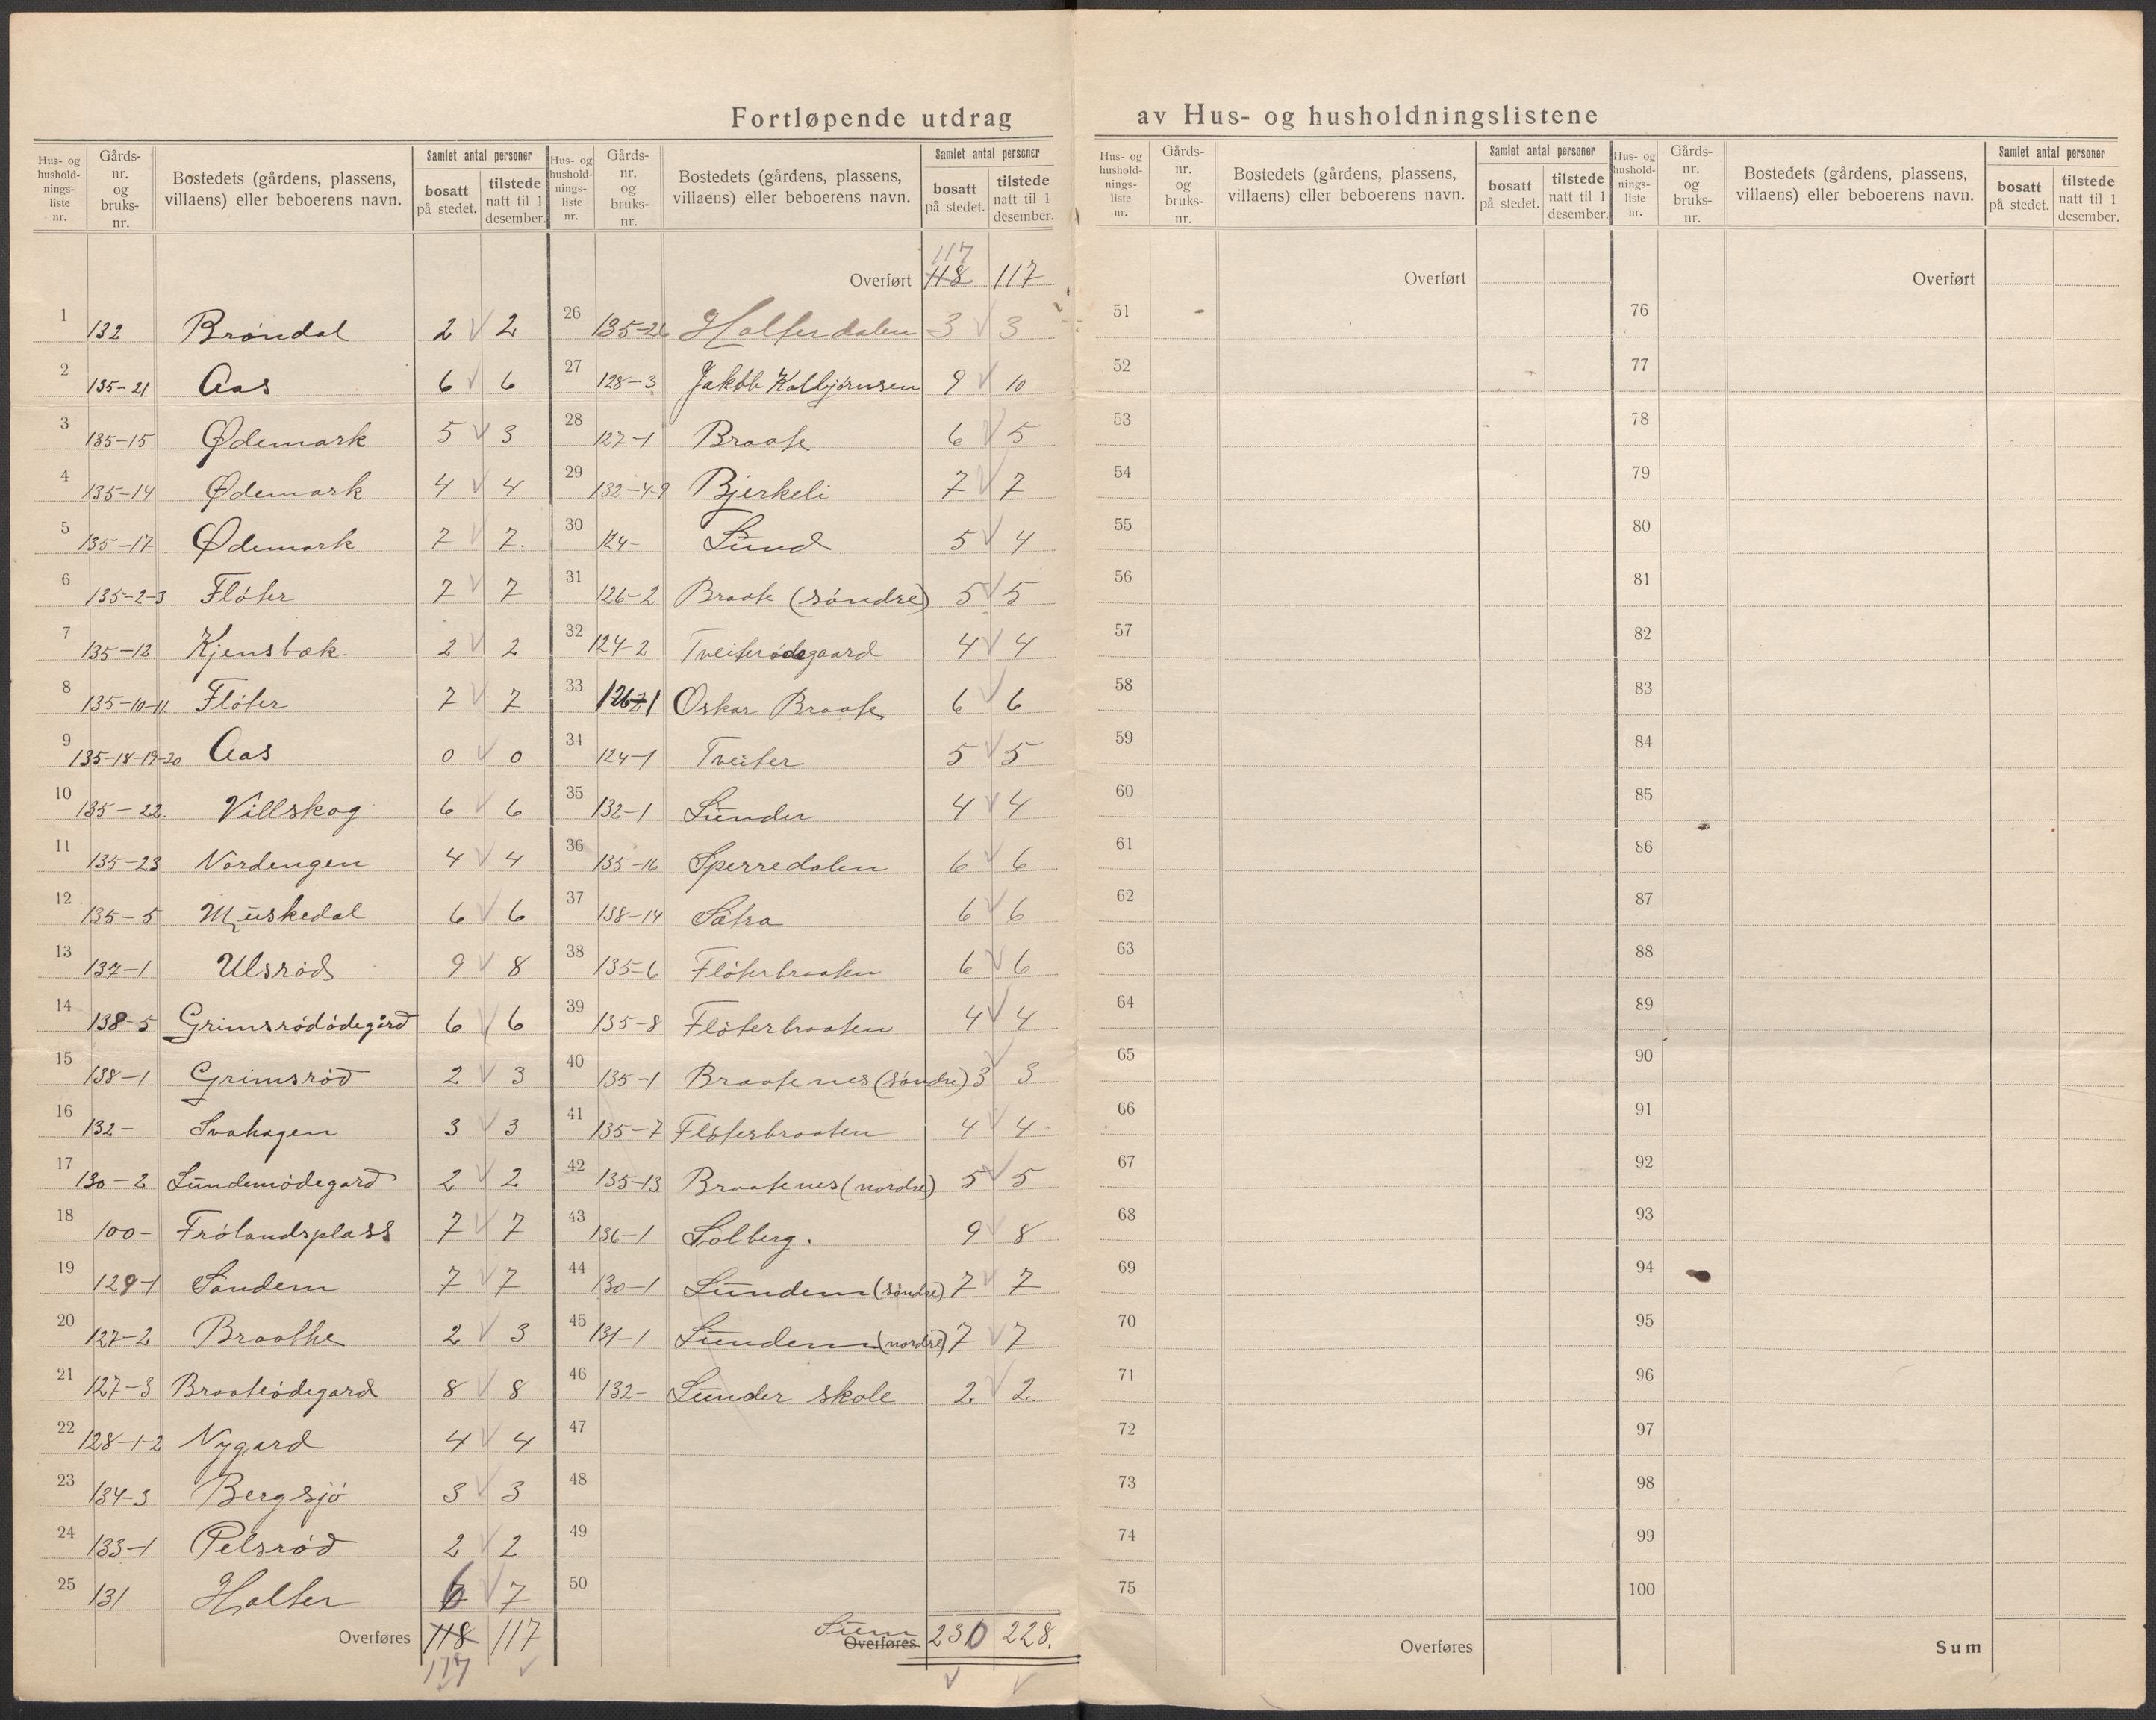 Fortløpende utdrag av Hus- og husholdningslistene
Hus- og husholdnings-liste nr. Gårds-nr. og bruks-nr. Bostedets (gårdens, plassens, villaens) eller beboerens navn. Samlet antal personer bosatt på stedet. tilstede natt til 1 desember.
1 132 Brøndal 2 V 2
2 135-21 Aas 6 V 6
3 135-15 Ødemark 5 V 3
4 135-14 Ødemark 4 V 4
5 135-17 Ødemark 7 V 7.
6 135-2-3 Fløter 7 V 7
7 135-12 Kjensbæk. 2 V 2
8 135-10-11. Fløter 7 V 7
9 135-18-19-20 Aas 0 V 0
10 135-22. Villskog 6 V 6
11 135-23 Nordengen 4 V 4
12 135-5 Muskedal 6 V 6
13 137-1 Ulsrød 9 V 8
14 138-5 Grimsrødødegård 6 V 6
15 138-1 Grimsrød 2 V 3
16 132- Svahagen 3 V 3
17 130-2 Lundemødegard 2 V 2
18 100- Frølandsplass 7 V 7
19 129-1 Sandem 7 V 7
20 127-2 Braathe 2 V 3
21 127-3 Braateødegard 8 V 8
22 128-1-2 Nygard 4 V 4
23 134-3 Bergsjø 3 V 3
24 133-1 Pelsrød 2 V 2
25 131 Halter 6 V 7
Overføres 118 117
117
Hus- og husholdnings-liste nr. Gårds-nr. og bruks-nr. Bostedets (gårdens, plassens, villaens) eller beboerens navn. Samlet antal personer bosatt på stedet. tilstede natt til 1 desember.
117
Overført 118 117
26 135-26 Halterdalen 3 V 3
27 128-3 Jakob Kolbjørnsen 9 V 10
28 127-1 Braate 6 V 5
29 132-4-9 Bjerkeli 7 V 7
30 124- Lund 5 V 4
31 126-2 Braate (søndre) 5 V 5
32 124-2 Tveiterødegaard 4 V 4
33 126-1 Oskar Braate 6 V 6
34 124-1 Tveiter 5 V 5
35 132-1 Lunder 4 V 4
36 135-16 Sperredalen 6 V 6
37 138-14 Sætra 6 V 6
38 135-6 Fløterbraaten 6 V 6
39 135-8 Fløterbraaten 4 V 4
40 135-1 Braatenes (søndre) 3 V 3
41 135-7 Fløterbraaten 4 V 4
42 135-13 Braatenes (nordre) 5 V 5
43 136-1 Solberg. 9 V 8
44 130-1 Lundem (søndre) 7 V 7
45 131-1 Lundem (nordre) 7 V 7
46 132- Lunder skole 2 V 2.
47
48
49
50
Sum Overføres 230 228.
V V
Hus- og husholdnings-liste nr. Gårds-nr. og bruks-nr. Bostedets (gårdens, plassens, villaens) eller beboerens navn. Samlet antal personer bosatt på stedet. tilstede natt til 1 desember.
Overført
51
52
53
54
55
56
57
58
59
60
61
62
63
64
65
66
67
68
69
70
71
72
73
74
75
Overføres
Hus- og husholdnings-liste nr. Gårds-nr. og bruks-nr. Bostedets (gårdens, plassens, villaens) eller beboerens navn. Samlet antal personer bosatt på stedet. tilstede natt til 1 desember.
Overført
76
77
78
79
80
81
82
83
84
85
86
87
88
89
90
91
92
93
94
95
96
97
98
99
100
Sum